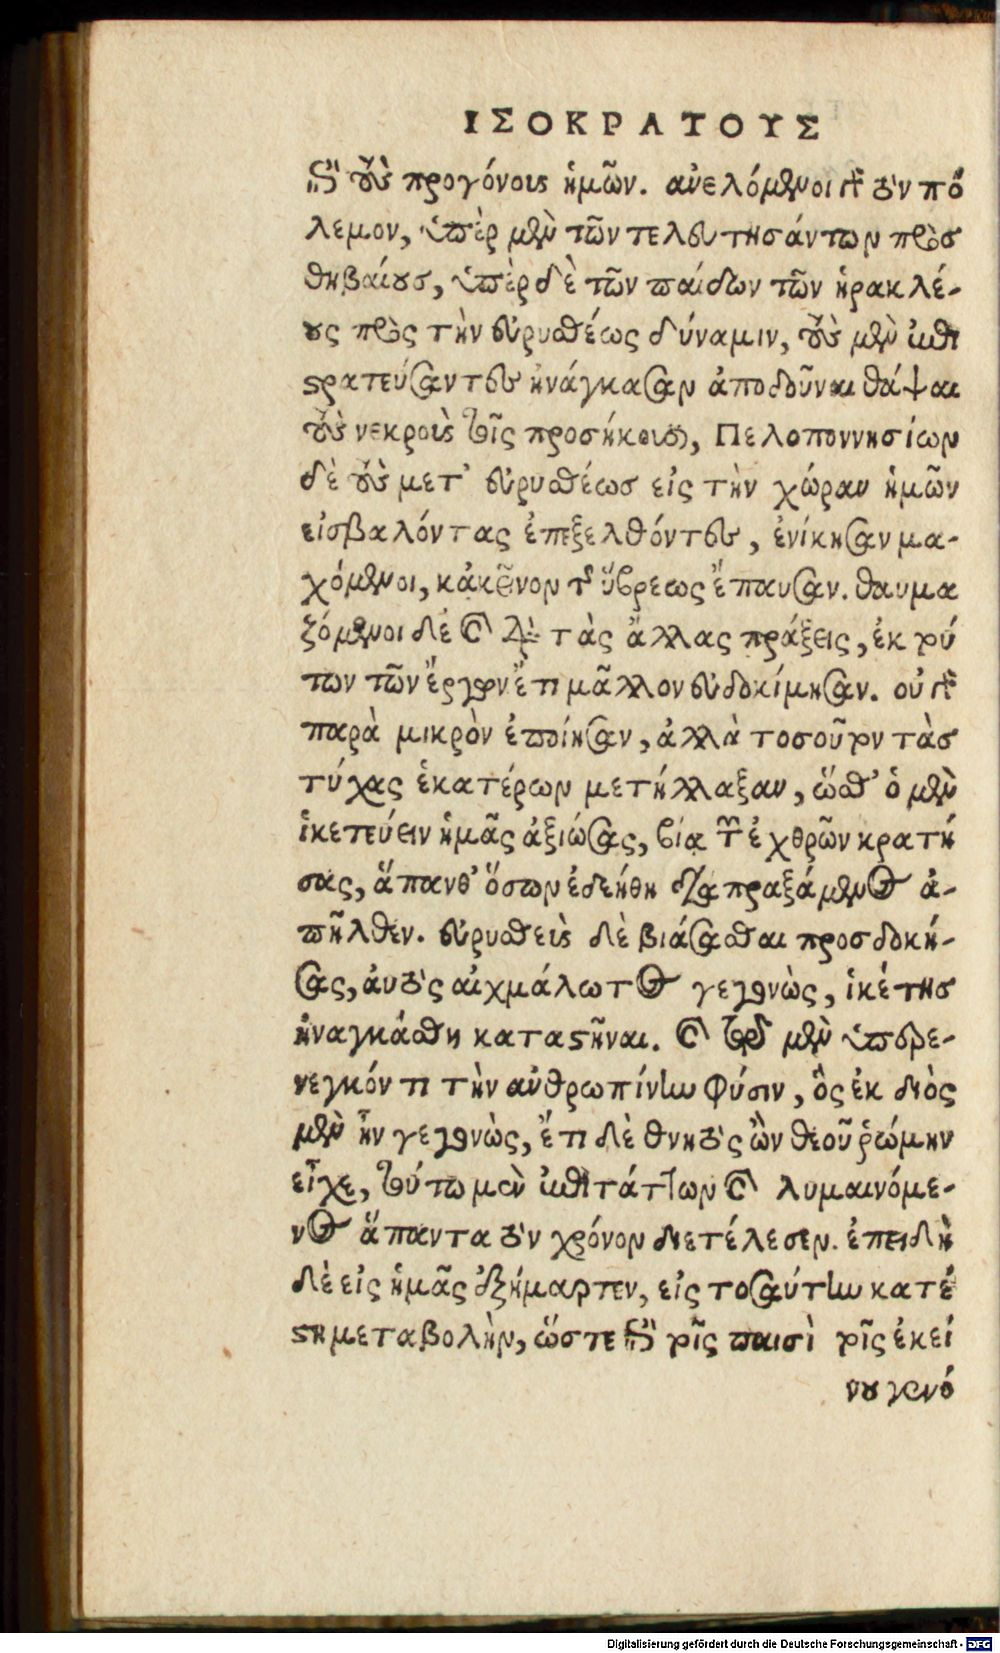 ΙΣΟΚΡΑΤΟΥΣ
τοὺς προγόνους ἡμῶν. ἀνελόμενοι γὰρ τὸν πό
λεμον, ὑπὲρ μὲν τῶν τελευτησάντων πρὸς
θηβαίους, ὑπὲρ δὲ τῶν παίδων τῶν ἡρακλέ-
ους πρὸς τὴν εὐρυσθέως δύναμιν, τοὺς μὲν ἐπι
στρατεύσαντες ἠνάγκασαν ἀποδοῦναι θάψαι
τοὺς νεκροὺς τοῖς προσήκουσι, Πελοποννησίων
δὲ τοὺς μετ' εὐρυσθέως εἰς τὴν χώραν ἡμῶν
εἰσβαλόντας ἐπεξελθόντες, ἐνίκησαν μα-
χόμενοι, κἀκεῖνον τῆς ὕβρεως ἔπαυσαν. θαυμα
ζόμενοι δὲ καὶ διὰ τὰς ἄλλας πράξεις, ἐκ τού
των τῶν ἔργων ἔτι μᾶλλον εὐδοκίμησαν. οὐ γὰρ
παρὰ μικρὸν ἐποίησαν, ἀλλὰ τοσοῦτον τὰς
τύχας ἑκατέρων μετήλλαξαν, ὥσθ' ὁ μὲν
ἱκετεύειν ἡμᾶς ἀξιώσας, βίᾳ τῶν ἐχθρῶν κρατή
σας, ἅπανθ' ὅσων ἐδεήθη διαπραξάμενος ἀ-
πῆλθεν. εὐρυσθεὺς δὲ βιάσασθαι προσδοκή-
σας, αὐτὸς αἰχμάλωτος γεγονὼς, ἱκέτης
ἠναγκάσθη καταστῆναι. καὶ τῷ μὲν ὑπερε-
νεγκόντι τὴν ἀνθρωπίνην φύσιν, ὃς ἐκ διὸς
μὲν ἦν γεγονὼς, ἔτι δὲ θνητὸς ὢν θεοῦ ῥώμην
εἶχε, τούτῳ μὲν ἐπιτάττων καὶ λυμαινόμε-
νος ἅπαντα τὸν χρόνον διετέλεσεν. ἐπειδὴ
δὲ εἰς ἡμᾶς ἐξήμαρτεν, εἰς τοσαύτην κατέ
στη μεταβολὴν, ὥστε τοῖς παισὶ τοῖς ἐκεί
νου γενό
Digitalisierung gefördert durch die Deutsche Forschungsgemeinschaft - DFG